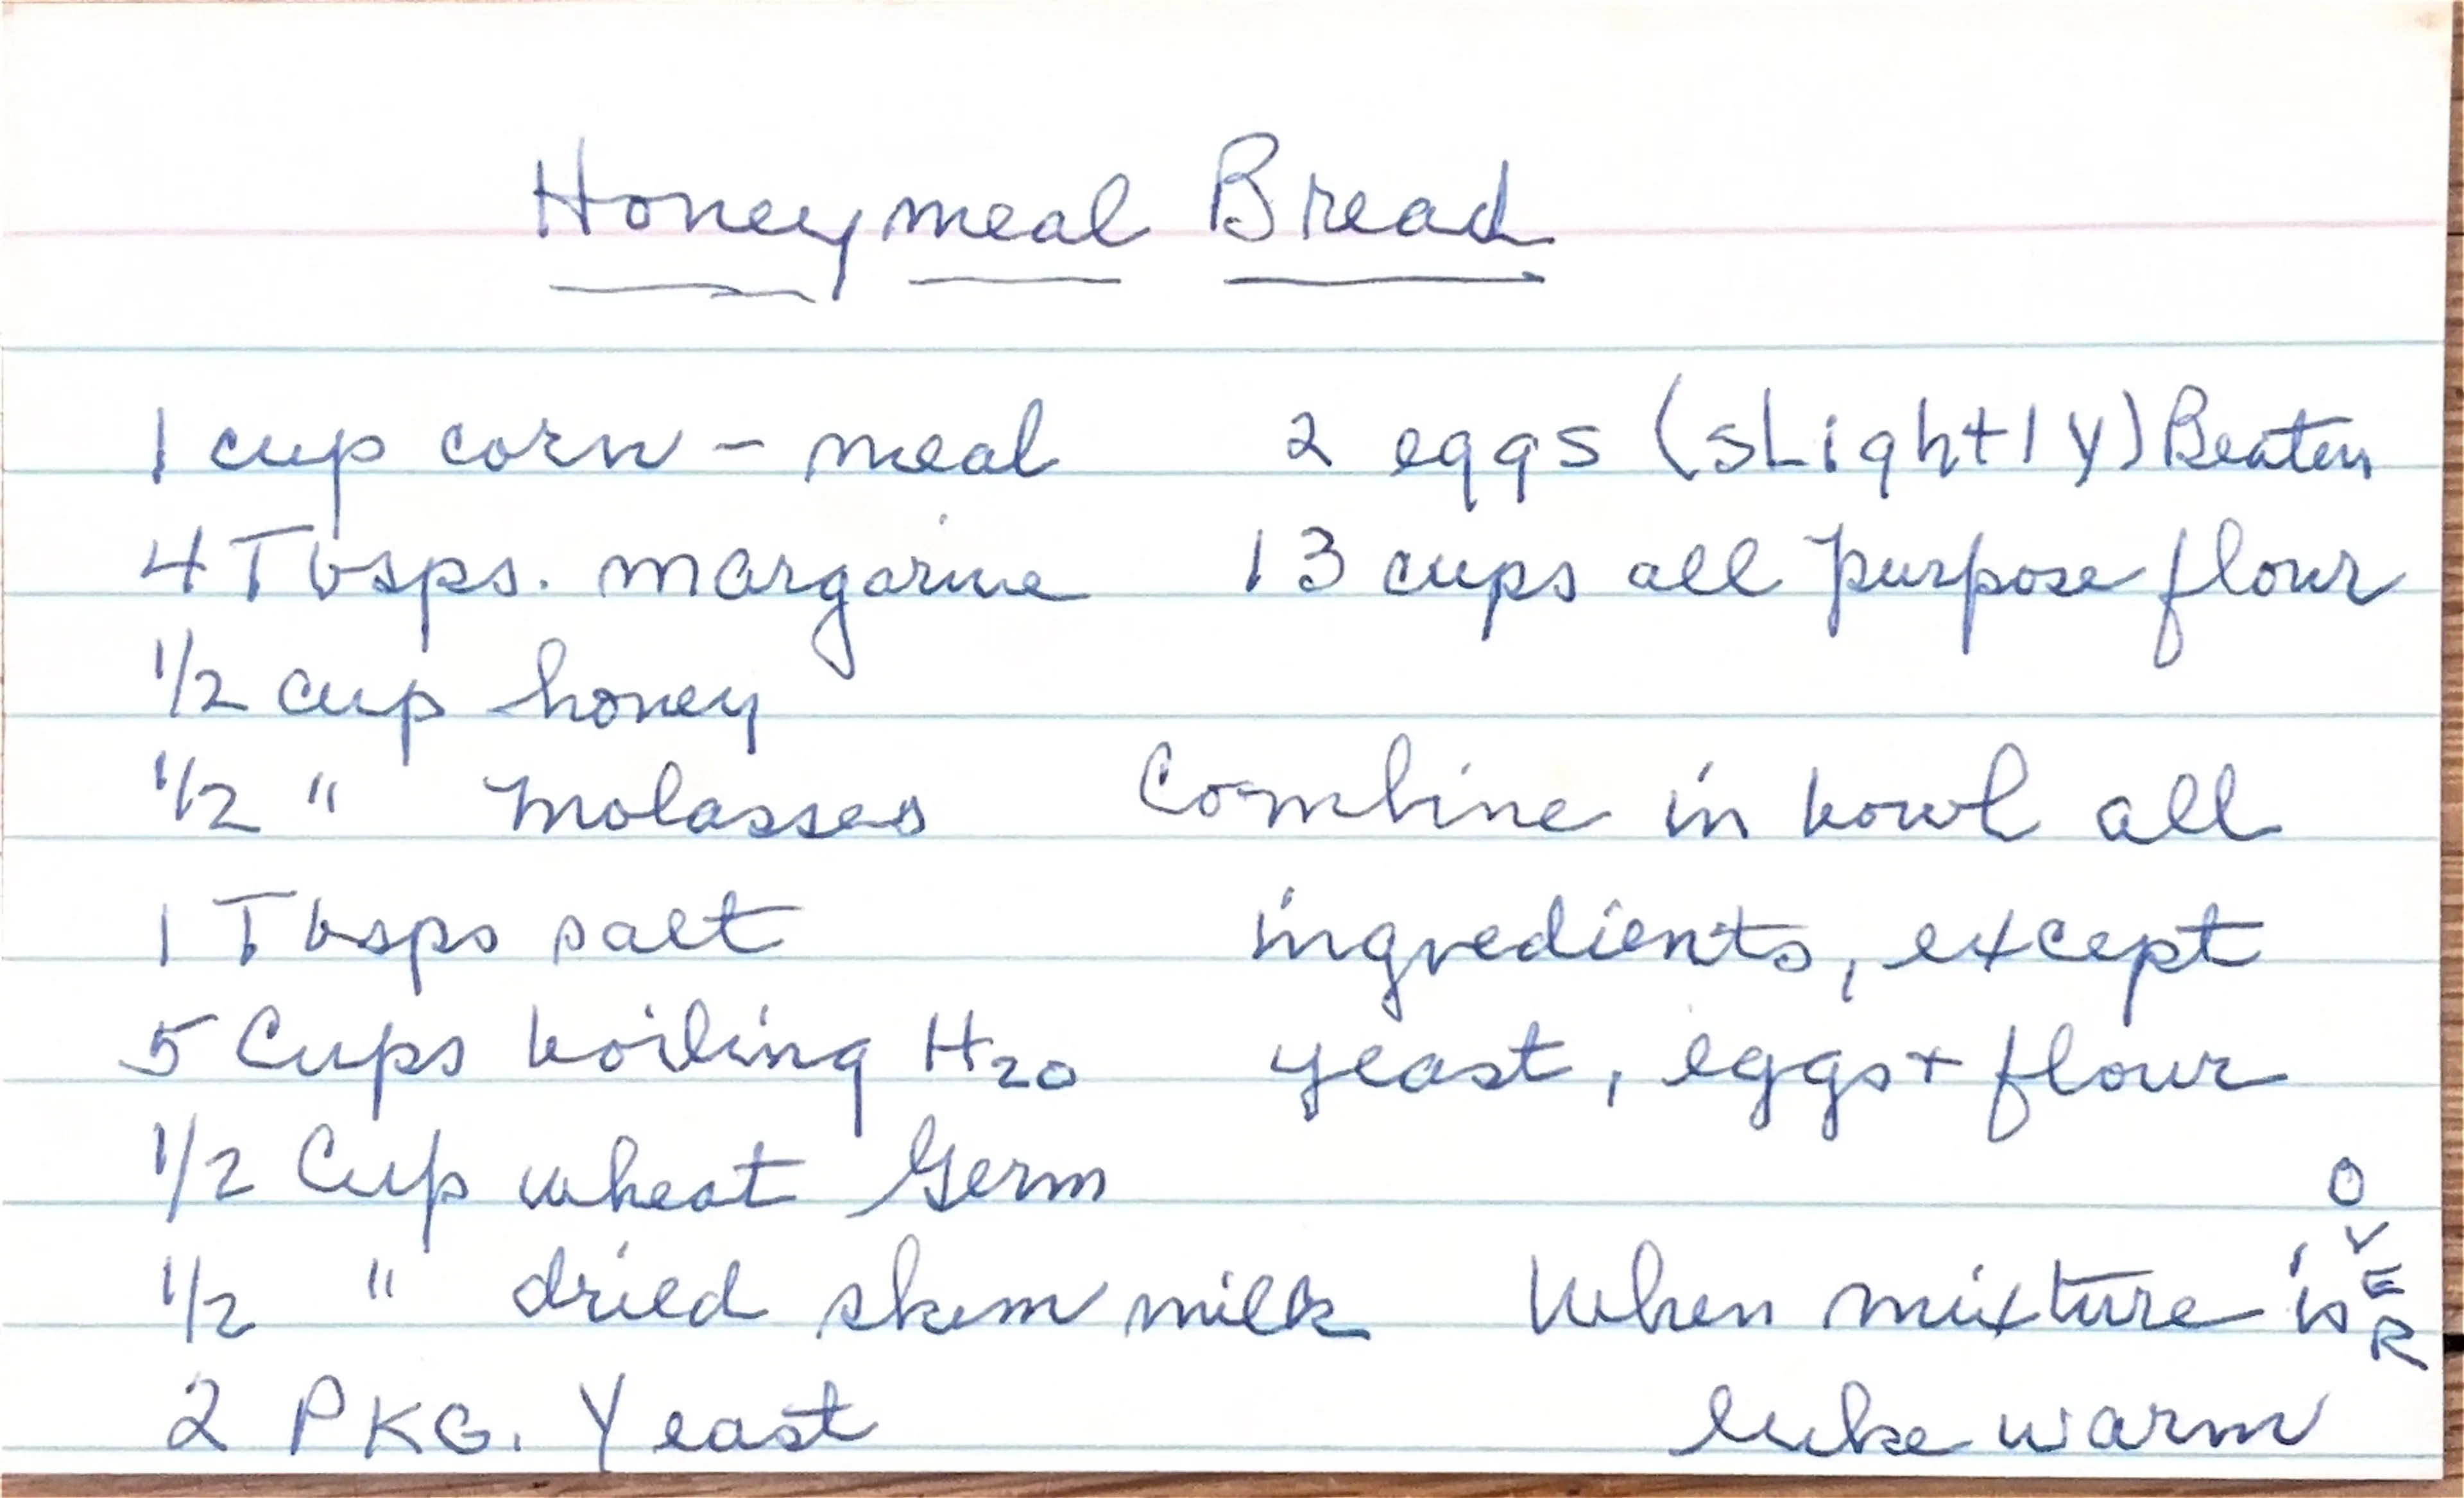 Honeymeal Bread
1 cup corn - meal
4 Tbsps. margarine
1/2 cup honey
1/2 " molasses
1 Tbsps salt
5 Cups boiling H2O
1/2 Cup wheat Germ
1/2 " dried skim milk
2 PKG. Yeast
2 eggs (sLightly) Beaten
13 cups all purpose flour
Combine in bowl all
ingredients, except
yeast, eggs + flour
When mixture is
luke warm
OVER